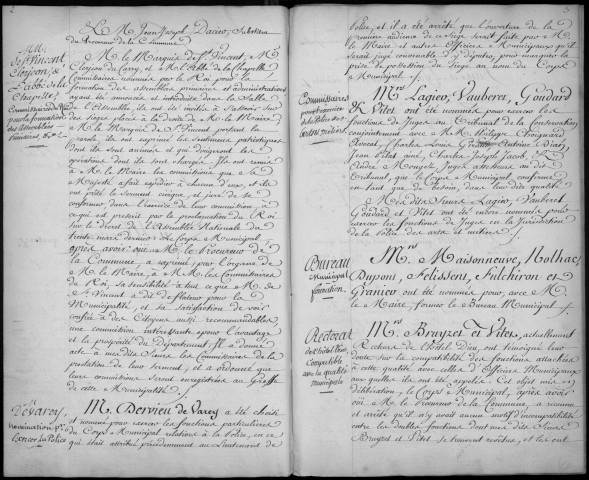 2
Et M. Jean Joseph Dacier, Substitut
du Procureur de la Commune
MM.
de St Vincent,
Clorjon, &
l'abbé de la
Chapelle,
Commissaires du Roi
pour la formation
des Assemblées
Primaires &c.
M.rs le Marquis de St Vincent, M.
de Cery, et M. l'Abbé de la Chapelle
Commissaires nommés par le Roi pour la
formation des assemblées primaires et administratives
ayant été annoncés et introduits dans la Salle de
l'Assemblée ils ont été invités à s'asseoir sur
des Sièges placés à la droite de M. le Maire
M. le Marquis de St Vincent portant la
parole ils ont exprimé les sentimens patriotiques
dont ils sont animés et qui dirigeront les
opérations dont ils sont chargés. Ils ont remis
à M. le Maire les commissions que Sa
Majesté a fait expédier à chacun d'eux, et ils
ont prêté le serment civique et juré de se
conformer, dans l'exercice de leur commission, à
ce qui est prescrit par la proclamation du Roi
sur le décret de l'Assemblée Nationale du
trente mars dernier. Le Corps Municipal,
après avoir ouï M. le Procureur de
la Commune, a exprimé, par l'organe de
M. le Maire, à MM. les Commissaires
du Roi, sa sensibilité à tout ce que M. de
St Vincent a dit de flatteur pour la
Municipalité, et sa satisfaction de voir
confier à des Citoyens aussi recommandables,
une commission intéressante pour l'avantage
et la prospérité du Département. Il a donné
acte à mes dits Sieurs les Commissaires de la
prestation de leur serment, et a ordonné que
leurs commissions seront enregistrées au Greffe
de cette Municipalité
De Varey,
nomination pr
exercer la Police
M. Dervieu de Varey a été choisi
et nommé pour exercer les fonctions particulières
du Corps Municipal relatives à la Police, en ce
qui était attribué précédemment au Lieutenant de
3
Police, et il a été arrêté que l'ouverture de la
première audience de ce Siège serait faite par M.
le Maire et autres Officiers Municipaux qu'il
serait jugé convenable d'y députer, pour marquer la
prise de possession du Siège au nom du Corps
Municipal
Commissaires
pour l'exercice
de la Police des Arts
et métiers
M.rs Lagier, Vauberet, Goudard
& Vitet ont été nommés pour exercer les
fonctions de Juges au Tribunal de la Conservation
conjointement avec MM. Philippe Choignard
Avocat, Charles Louis Antoine
Jean Charles Joseph Jacob, &
André Monges Juges actuels au dit
Tribunal, que le Corps Municipal confirme
en tant que de besoin, dans leur dite qualité
Mes dits Sieurs Lagier, Vauberet
Goudard et Vitet ont été encore nommés pour
exercer les fonctions de Juges en la Jurisdiction
de la Police des arts et métiers
Bureau
Municipal
formation
M.rs Maisonneuve, Nolhac,
Dupont, Felissent, Fulchiron et
Granier ont été nommés pour, avec M.
le Maire, former le Bureau Municipal
Rectorat
de l'hôtel Dieu,
Compatible
avec la qualité
municipale
M.rs Bruyzet et Vitet, actuellement
Recteurs de l'hôtel Dieu, ont témoigné leur
doute sur la compatibilité des fonctions attachées
à cette qualité avec celles d'Officiers Municipaux
aux quelles ils ont été appelés. Cet objet mis en
délibération, le Corps Municipal, après avoir
ouï M. le Procureur de la Commune, a reconnu
et arrêté qu'il n'y avait aucun motif d'incompatibilité
entre les doubles fonctions dont mes dits Sieurs
Bruyzet et Vitet se trouvent revêtus, et les ont